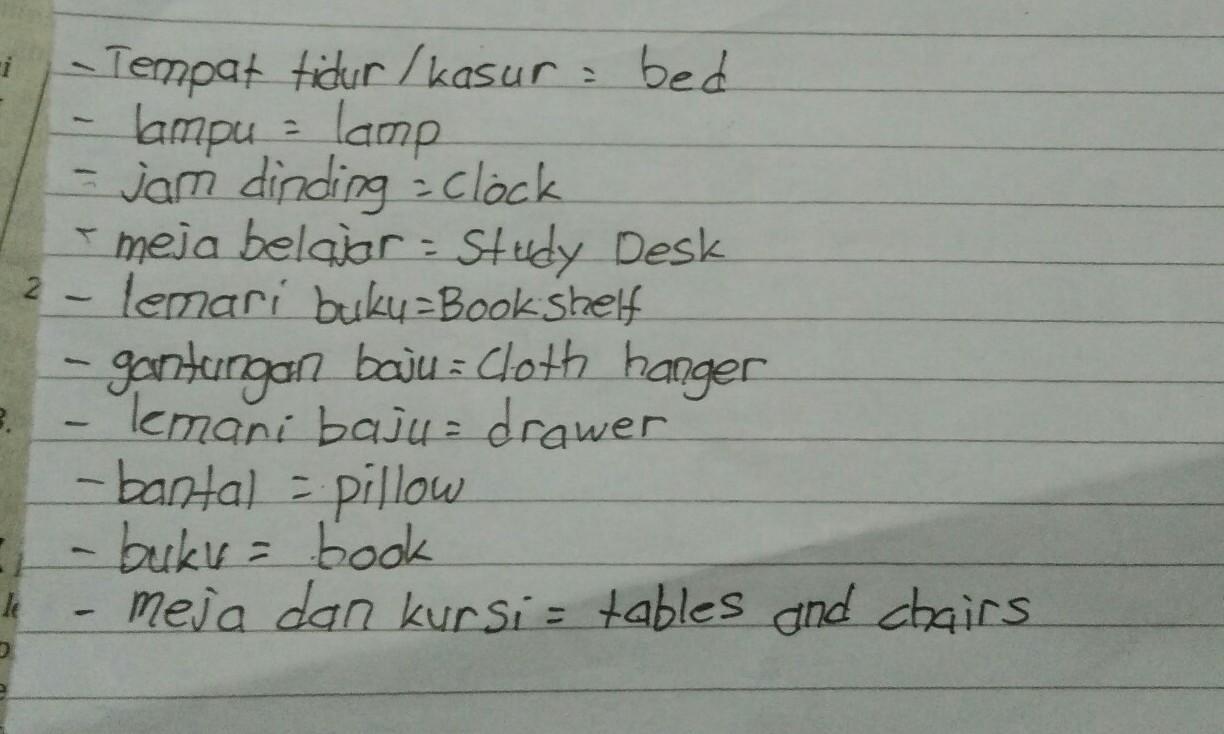 - Tempat tidur/kasur = bed
- lampu = lamp
= jam dinding = Clock
- meja belajar = Study Desk
2 - lemari buku = Bookshelf
- gantungan baju = Cloth hanger
- lemari baju = drawer
- bantal = pillow
- buku = book
- meja dan kursi = tables and chairs